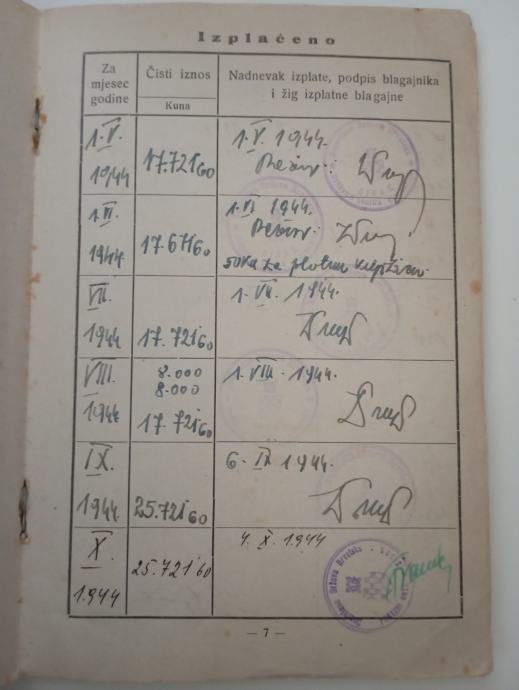 Izplaćeno
Za mjesec godine
Čisti iznos
Kuna
Nadnevak izplate, podpis blagajnika i žig izplatne blagajne
1. V. 1944
17.721 60
1. V. 1944.
1. VI. 1944.
17.671 60
1. VI. 1944.
50 Ka za
VII. 1944
17.721 60
1. VII. 1944.
VIII. 1944
8.000
8.000
17.721 60
1. VIII. 1944.
IX. 1944
25.721 60
6. IX 1944.
X. 1944
25.721 60
4. X. 1944
Država Hrvatska
— 7 —